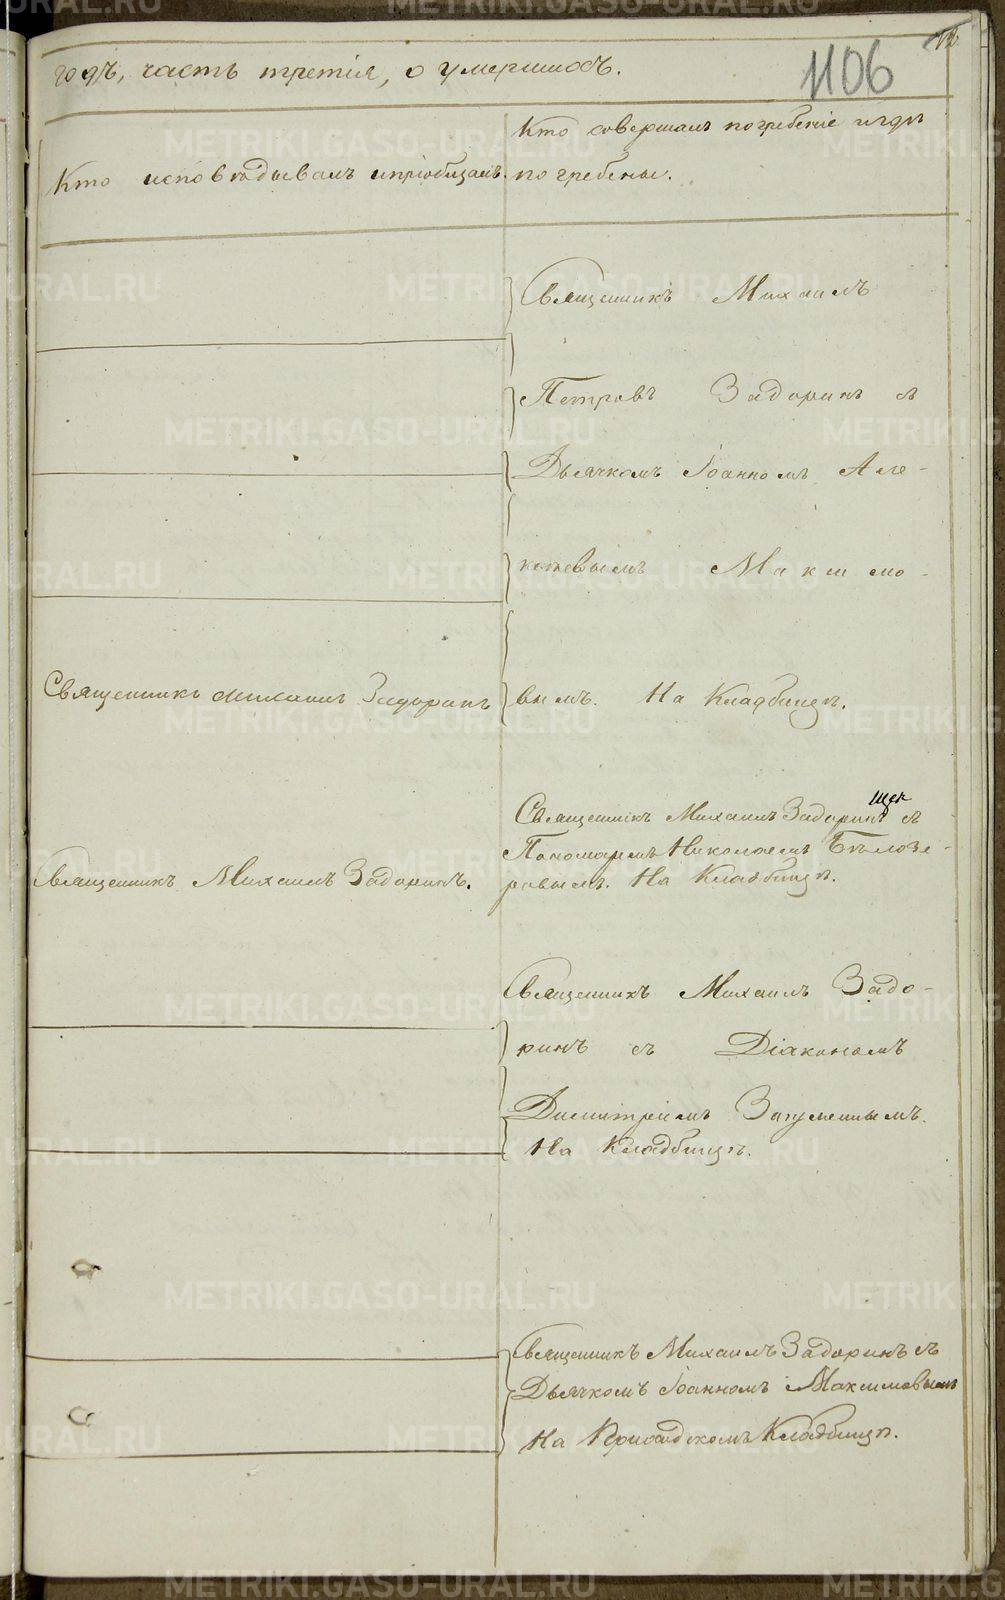 годъ, часть третія, о умершихъ.
1106
Кто исповѣдывалъ и пріобщалъ.
Кто совершалъ погребеніе и гдѣ
погребены.
Священникъ Михаилъ
Петровъ Задоринъ съ
Дьячкомъ Іоанномъ Але-
ксѣевымъ Максимо-
Священникъ Михаилъ Задоринъ
вымъ. На Кладбищѣ.
Священникъ Михаилъ Задоринъ съ
Пономаремъ Николаемъ Бѣлозе-
ровымъ. На Кладбищѣ.
Священникъ Михаилъ Задоринъ.
Священникъ Михаилъ Задо-
ринъ съ Діакономъ
Димитріемъ Загуменнымъ.
На Кладбищѣ.
Священникъ Михаилъ Задоринъ съ
Дьячкомъ Іоанномъ Максимовымъ
На Приходскомъ Кладбищѣ.
METRIKI.GASO-URAL.RU